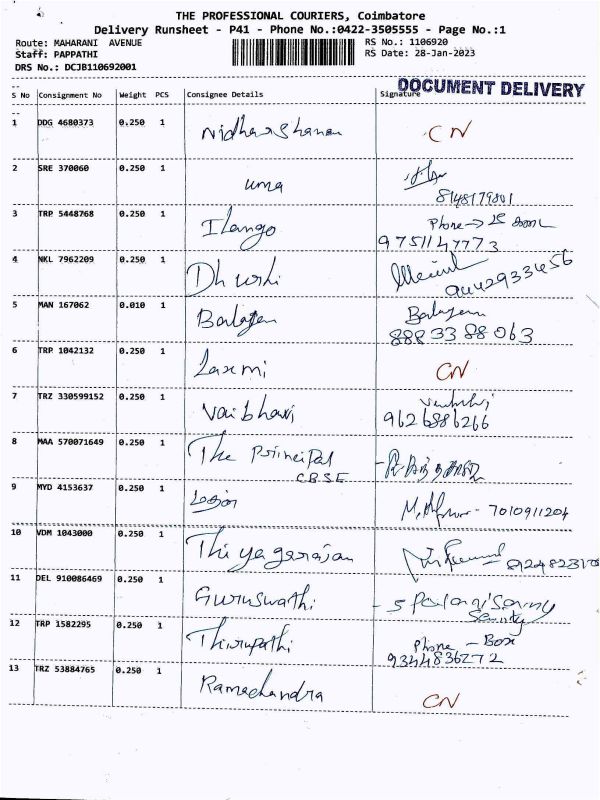 THE PROFESSIONAL COURIERS, Coimbatore
Delivery Runsheet - P41 - Phone No.:0422-3505555 - Page No.:1
Route: MAHARANI AVENUE RS No.: 1106920
Staff: PAPPATHI RS Date: 28-Jan-2023
DRS No.: DCJB110692001
DOCUMENT DELIVERY
S No Consignment No Weight PCS Consignee Details Signature
1 DDG 4680373 0.250 1 Nidharshanan CN
2 SRE 370060 0.250 1 uma
8148179801
3 TRP 5448768 0.250 1 Ilango Phone →
9751147773
4 NKL 7962209 0.250 1 Dhurshi 9442933456
5 MAN 167062 0.010 1 Balajem Balajem
8883388063
6 TRP 1042132 0.250 1 Laxmi CN
7 TRZ 330599152 0.250 1 Vaibhavi
9626886266
8 MAA 570071649 0.250 1 The Principal
CBSE
9 MYD 4153637 0.250 1 - 7010911204
10 VDM 1043000 0.250 1 Thiyagarajan
11 DEL 910086469 0.250 1 Guruswathi
Security
12 TRP 1582295 0.250 1 Thirupathi Phone - Box
9344836272
13 TRZ 53884765 0.250 1 Ramachandra CN